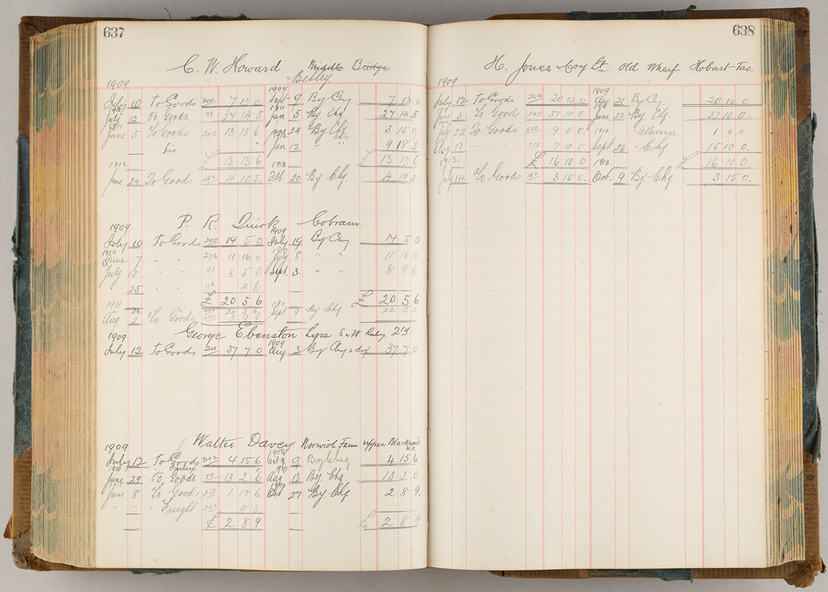 637
C. W. Howard Bridge
Betley
1909 1909
July 10 To Goods 202 7 13 0 Sept 9 By Chq 7 13 0
July 12 To Goods 27 14 5 Jan 5 By Chq 27 14 5
1911
June 5 To Goods 13 13 6 24 By Chq 3 15 0
Jan 12 " " 9 18 3
£ 13 13 6 £ 13 13 6
1912 1913
June 29 To Goods 4 10 3 Feb 20 By Chq 4 10 3
P. R. Quick Cobram
1909 1909
July 10 To Goods 202 14 5 0 July 19 By Chq 14 5 0
1910
June 7 " " 276 11 16 0 July 8 " " 11 16 0
July 15 " " 8 5 0 Sept 3 " " 8 9 6
" 25 " " 4 6
£ 20 5 6 £ 20 5 6
1911
Aug 2 To Goods Sept 9 By Chq
George Ebenston Lyra
1909 1909
July 12 To Goods 37 7 0 Aug 3 By Chq 37 7 0
Walter Davey Norwich Farm Upper
1909
July 12 To Goods 202 4 15 6 9 4 15 6
1910 1910
June 29 To Goods 13 2 6 Aug 13 By Chq 13 3 0
June 8 To Goods 1 17 6 Oct 27 By Chq 2 8 9
" " Freight 11 3
£ 2 8 9 £ 2 8 9
638
H. Jones & Coy Lt. Old Wharf Hobart-Tas.
1909 1909
July 12 To Goods 202 20 10 0 Aug 21 By Chq 20 10 0
June 3 To Goods 37 10 0 June 22 By Chq 37 10 0
July 22 To Goods 9 0 0 Allowance 1 0 0
Aug 17 " " 7 10 0 Sept 28 " Chq 15 10 0
£ 16 10 0 £ 16 10 0
1913 1913
July To Goods 3 15 0 Oct. 9 By Chq 3 15 0